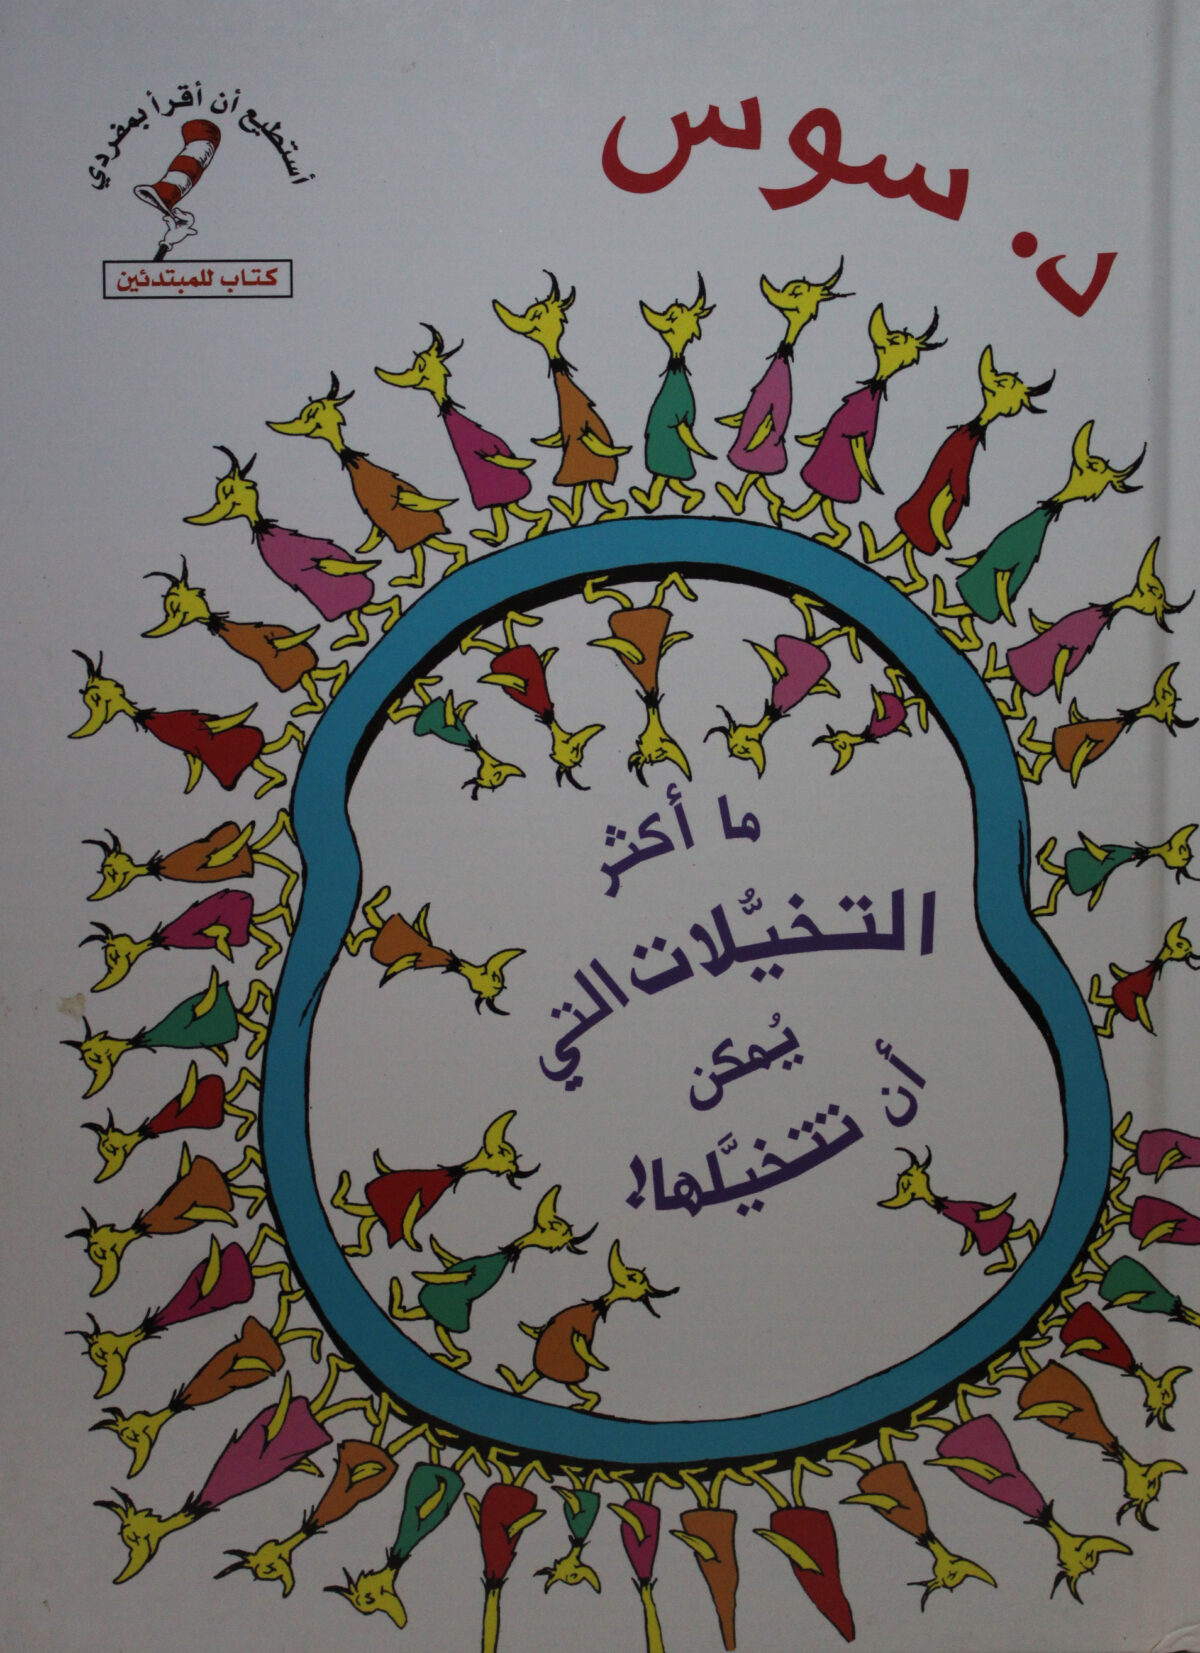 د. سوس
أستطيع أن أقرأ بمفردي
كتاب للمبتدئين
ما أكثر
التخيُّلات التي
يُمكن
أن تتخيَّلها!